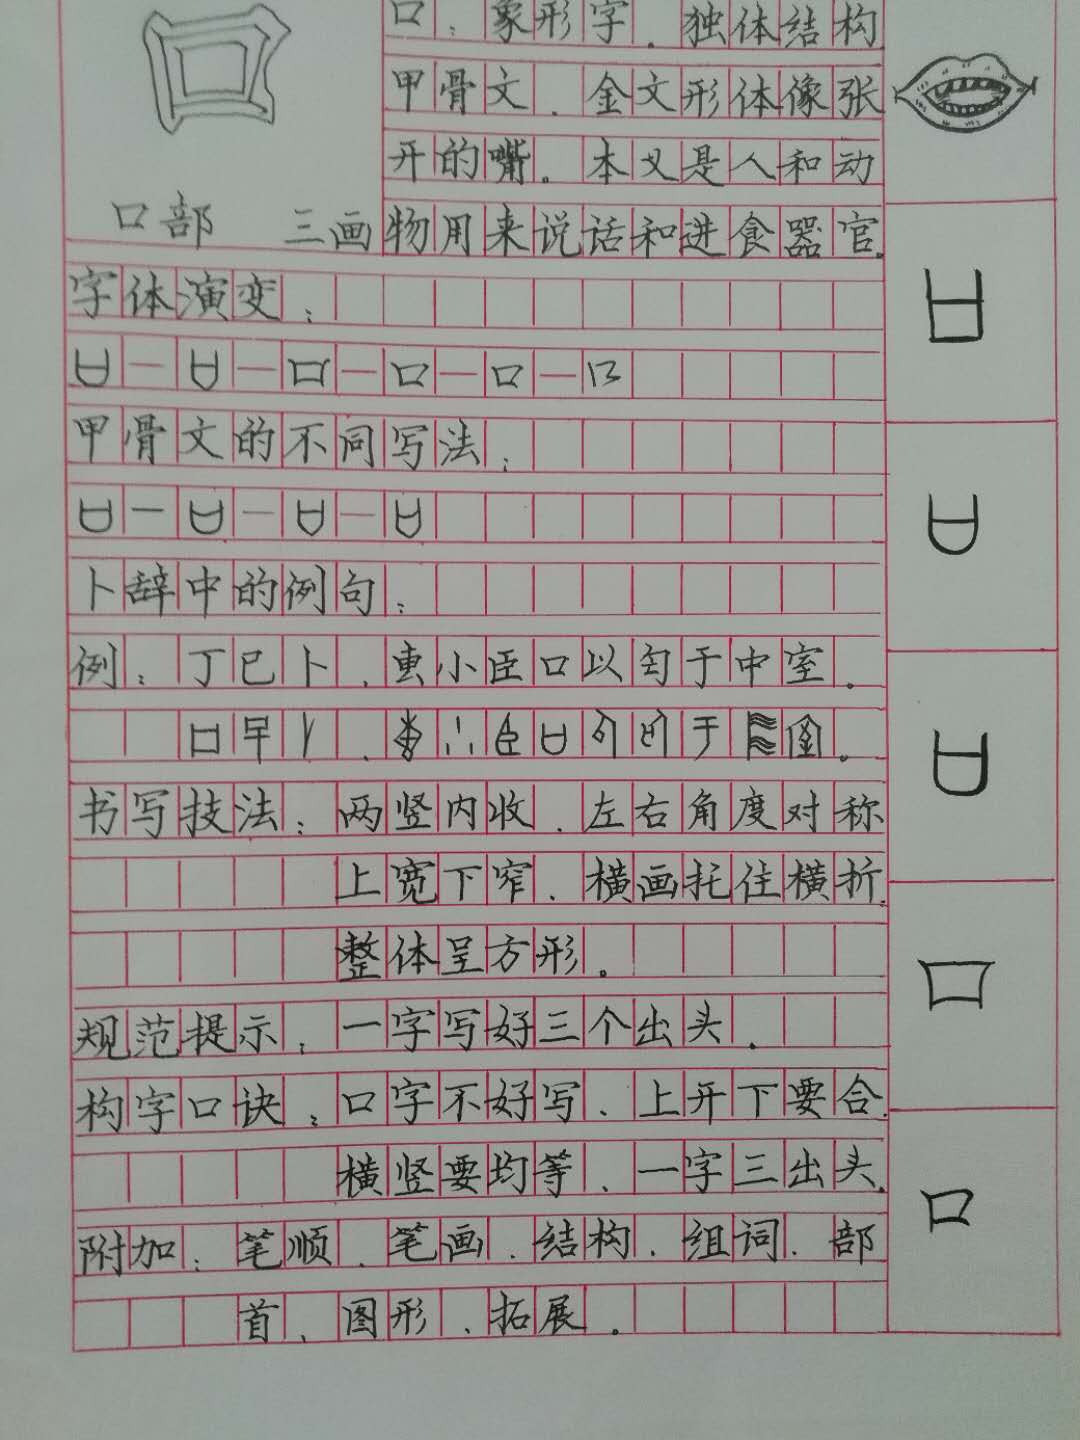 口：象形字．独体结构
甲骨文．金文形体像张
开的嘴。本义是人和动
口部 三画
物用来说话和进食器官.
字体演变：
口—口—口—口—口—口
甲骨文的不同写法：
口—口—口—口
卜辞中的例句：
例：丁巳卜．叀小臣口以匄于中室．
书写技法：两竖内收．左右角度对称
上宽下窄．横画托住横折.
整体呈方形。
规范提示：一字写好三个出头．
构字口诀：口字不好写、上开下要合.
横竖要均等、一字三出头.
附加：笔顺．笔画．结构．组词．部
首、图形、拓展．